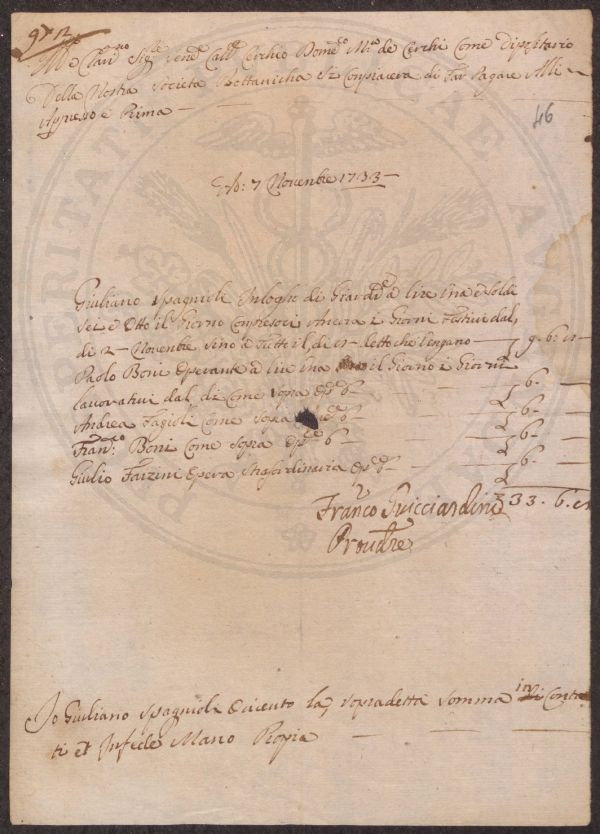 9 12
Ill.e Clar.mo Sig.le Sene Cav.e Cerchio Dome.co M.a de Cerchi Come Dipositario
Della Nostra Società Bottanicha Si Conpiacera di Far Pagare Alli
Appreso e Prima
46
7 Novenbre 1733
Giuliano Spagnioli Inlogho di Giard. a lire Una e Soldi
Sei e Otto il Giorno Conpresoci Ancora i Giorni Festivi dal
di 2 Novenbre Sino a tutti il di detto che lengano 9. 6.
Paolo Boni Operante a lire Una il Giorno i Giorni
lavorativi dal di Come Sopra Op.e 6 6.
Andrea Fagioli Come Sopra 6 6.
Fran.co Boni Come Sopra Op.e 6 6.
Giulio Farzini Opera Straordinaria Op.e 6 6.
Franco Guicciardini 33. 6.
Prov.re
Io Giuliano Spagnioli Ricieuto la sopradetta Somma in Conta
ti et Infede Mano Propia